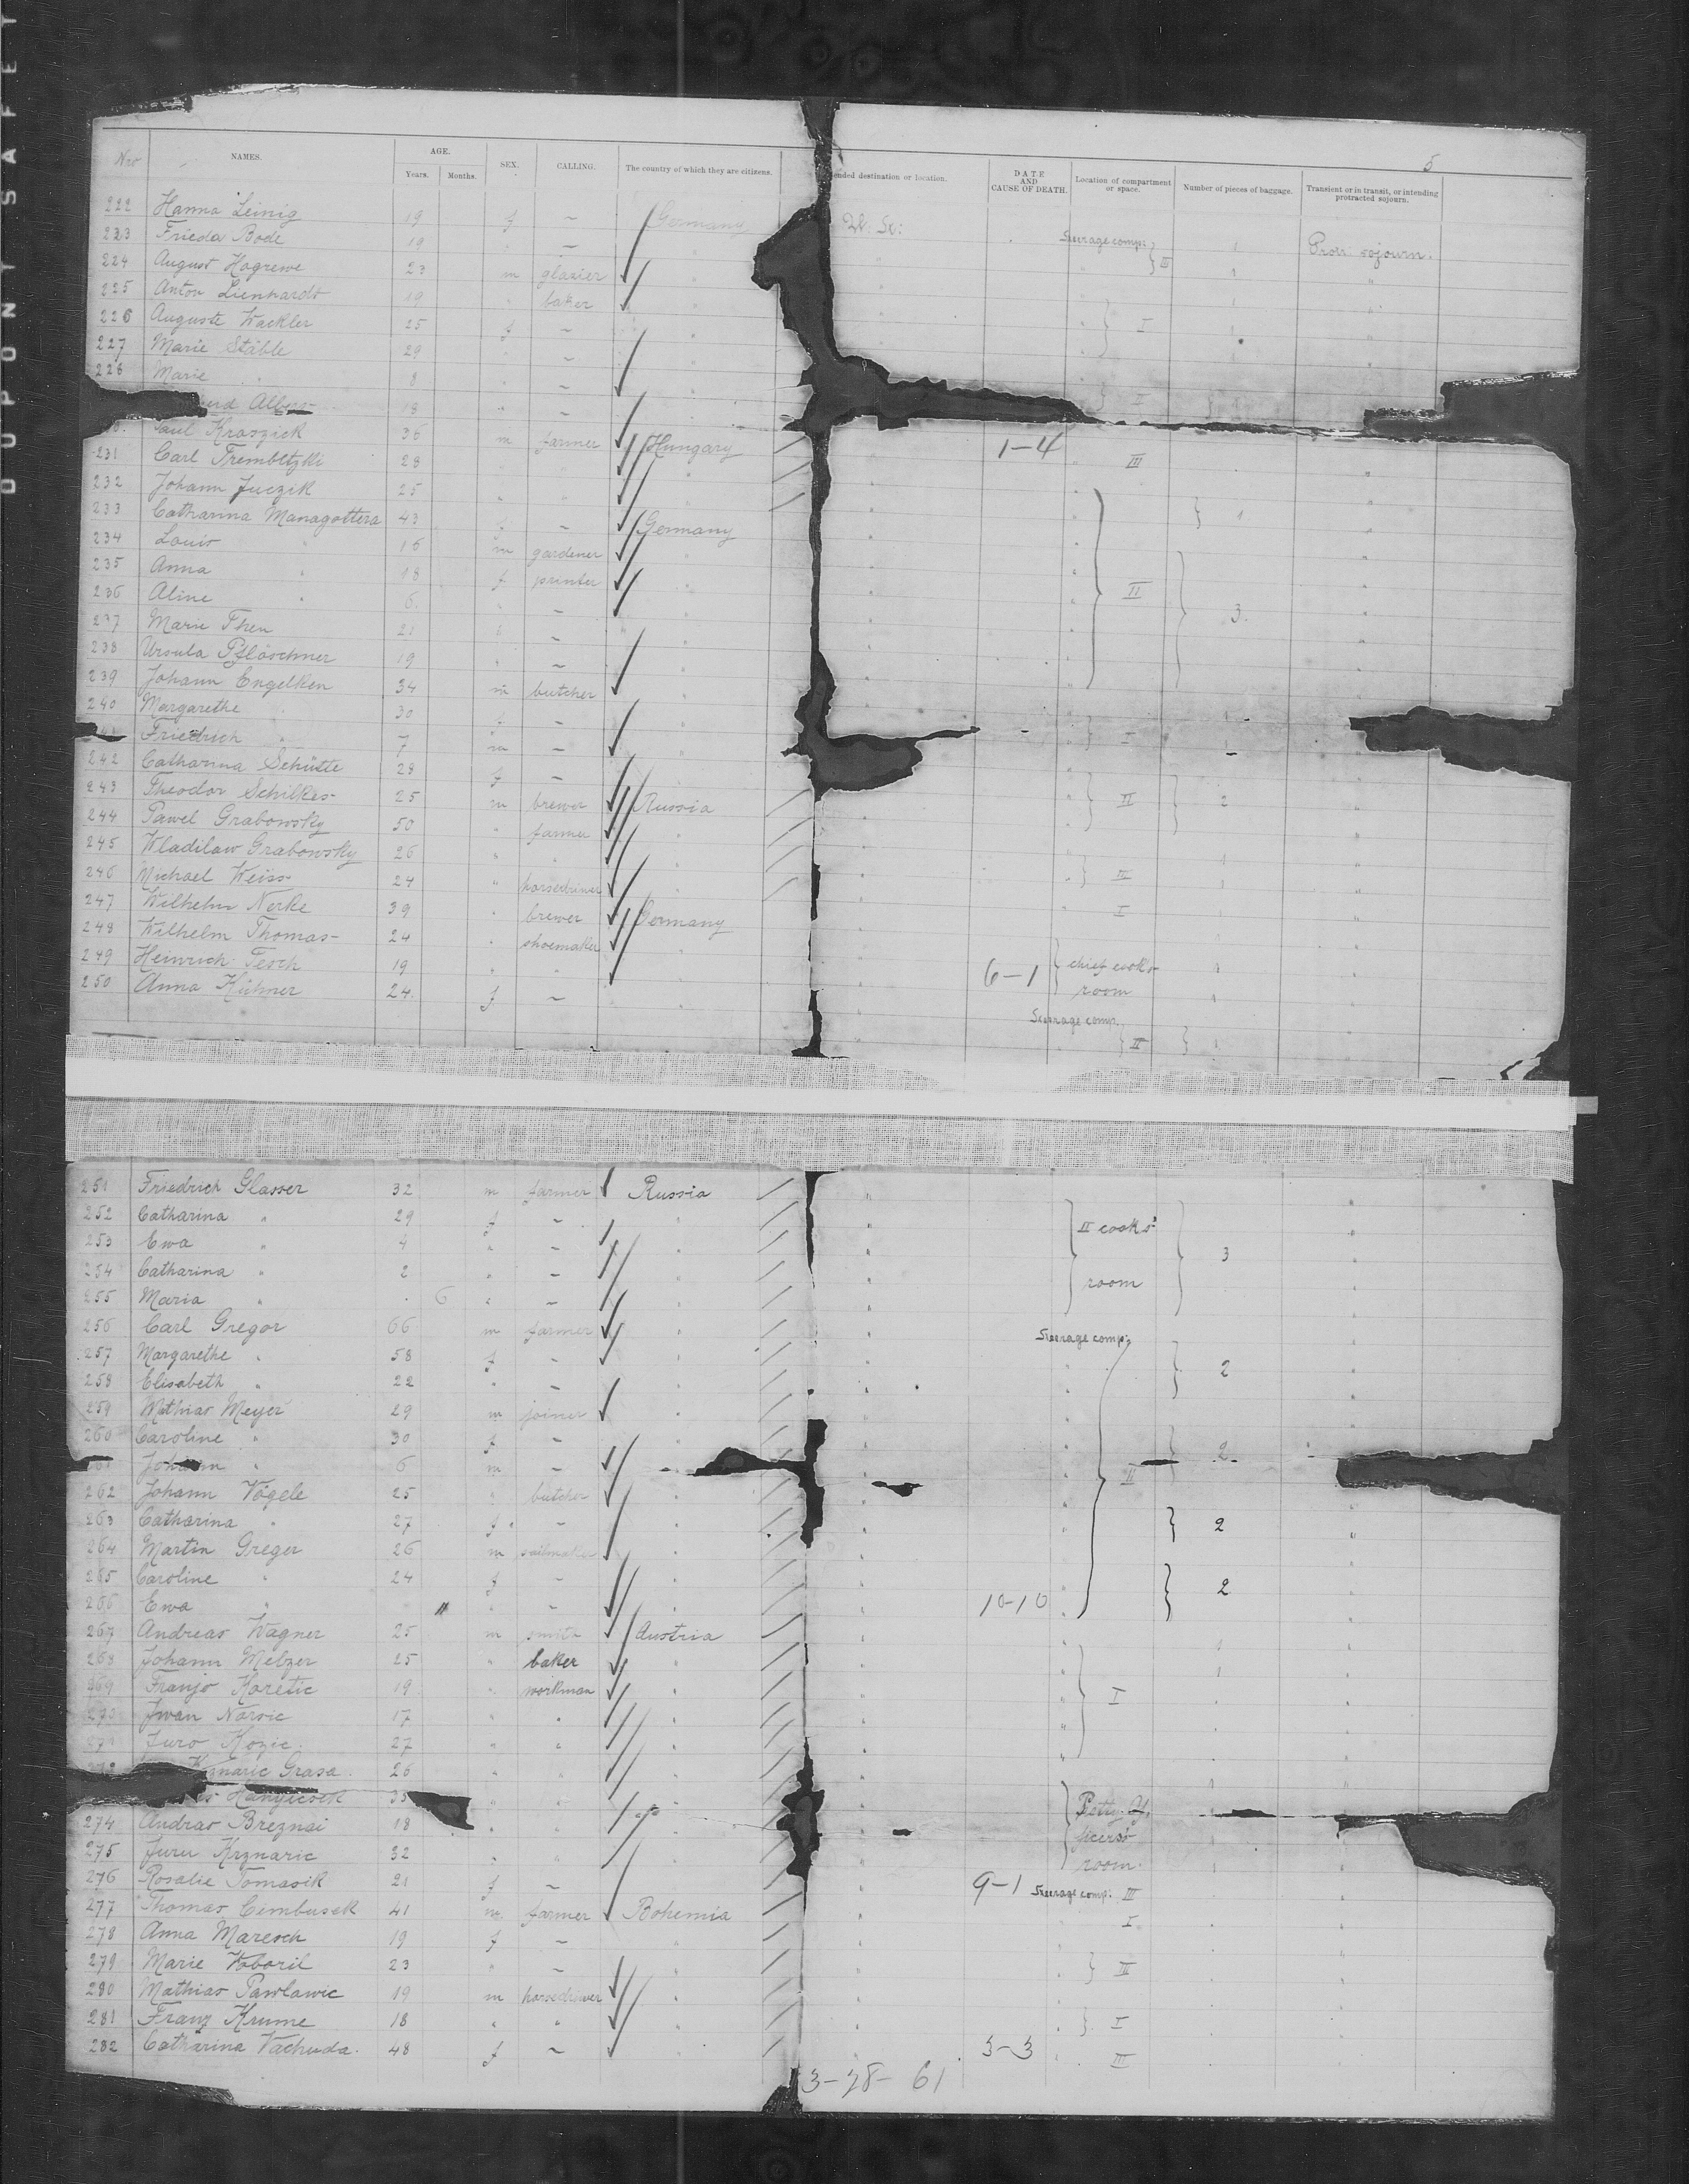 DUPONT SAFET
5
Nro NAMES. AGE. Years. Months. SEX. CALLING. The country of which they are citizens. ended destination or location. DATE AND CAUSE OF DEATH. Location of compartment or space. Number of pieces of baggage. Transient or in transit, or intending protracted sojourn.
222 Hanna Leinig 19 f – Germany U. St. Steerage comp. 1 Protr. sojourn.
223 Frieda Bode 19 " – " " " III 1 "
224 August Hogrewe 23 m glazier " "
225 Anton Lienhardt 19 " baker " " I
226 Auguste Wackler 25 f – "
227 Marie Stäble 29 " – "
228 Marie " 8 " – " I
Albers 18 " – "
Paul Kraszick 36 m farmer Hungary 1-4 III
231 Carl Trembetzki 28 " " "
232 Johann Juczik 25 " " " 1
233 Catharina Managottera 43 f – Germany
234 Louis " 16 m gardener "
235 Anna " 18 f printer "
236 Aline " 6 " – " II 3
237 Marie Then 21 " – "
238 Ursula Pflöschner 19 " – "
239 Johann Engelken 34 m butcher "
240 Margarethe " 30 f – "
Friedrich " 7 m – " I
242 Catharina Schütte 28 f – "
243 Theodor Schilkes 25 m brewer Russia II 2
244 Pawel Grabowsky 50 " farmer "
245 Wladilaw Grabowsky 26 " " "
246 Michael Weiss 24 " " III
247 Wilhelm Nerke 39 " brewer Germany I
248 Wilhelm Thomas 24 " shoemaker "
249 Heinrich Tesch 19 " " " 6-1 chief cook's
250 Anna Hübner 24 f – " room
Steerage comp.
II
251 Friedrich Glasser 32 m farmer Russia
252 Catharina " 29 f – " II cook's
253 Ewa " 4 " – " 3
254 Catharina " 2 " – " room
255 Maria " . 6 " – "
256 Carl Gregor 66 m farmer " Steerage comp.
257 Margarethe " 58 f – " 2
258 Elisabeth " 22 " – "
259 Mathias Meyer 29 m joiner "
260 Caroline " 30 f – " 2
Johann " 6 m – " II
262 Johann Vögele 25 " butcher "
263 Catharina " 27 f – " 2
264 Martin Greger 26 m sailmaker "
265 Caroline " 24 f – " 2
266 Ewa " 11 " – " 10-10
267 Andreas Wagner 25 m smith Austria
268 Johann Melzer 25 " baker "
269 Franjo Koretic 19 " workman " I
270 Jwan Norsic 17 " " "
271 Juro Kozic 27 " " "
Grasa 26 " "
35 " "
274 Andras Breznai 18 " " Petty of
275 Juru Krznaric 32 " " ficers'
276 Rosalie Tomasik 21 f – room.
277 Thomas Cembusek 41 m farmer Bohemia 9-1 Steerage comp. III
278 Anna Maresch 19 f – " I
279 Marie Woboril 23 " – " III
280 Mathias Pawlawic 19 m "
281 Franz Krume 18 " " " I
282 Catharina Vachuda 48 f – " 3-3 III
3-28-61